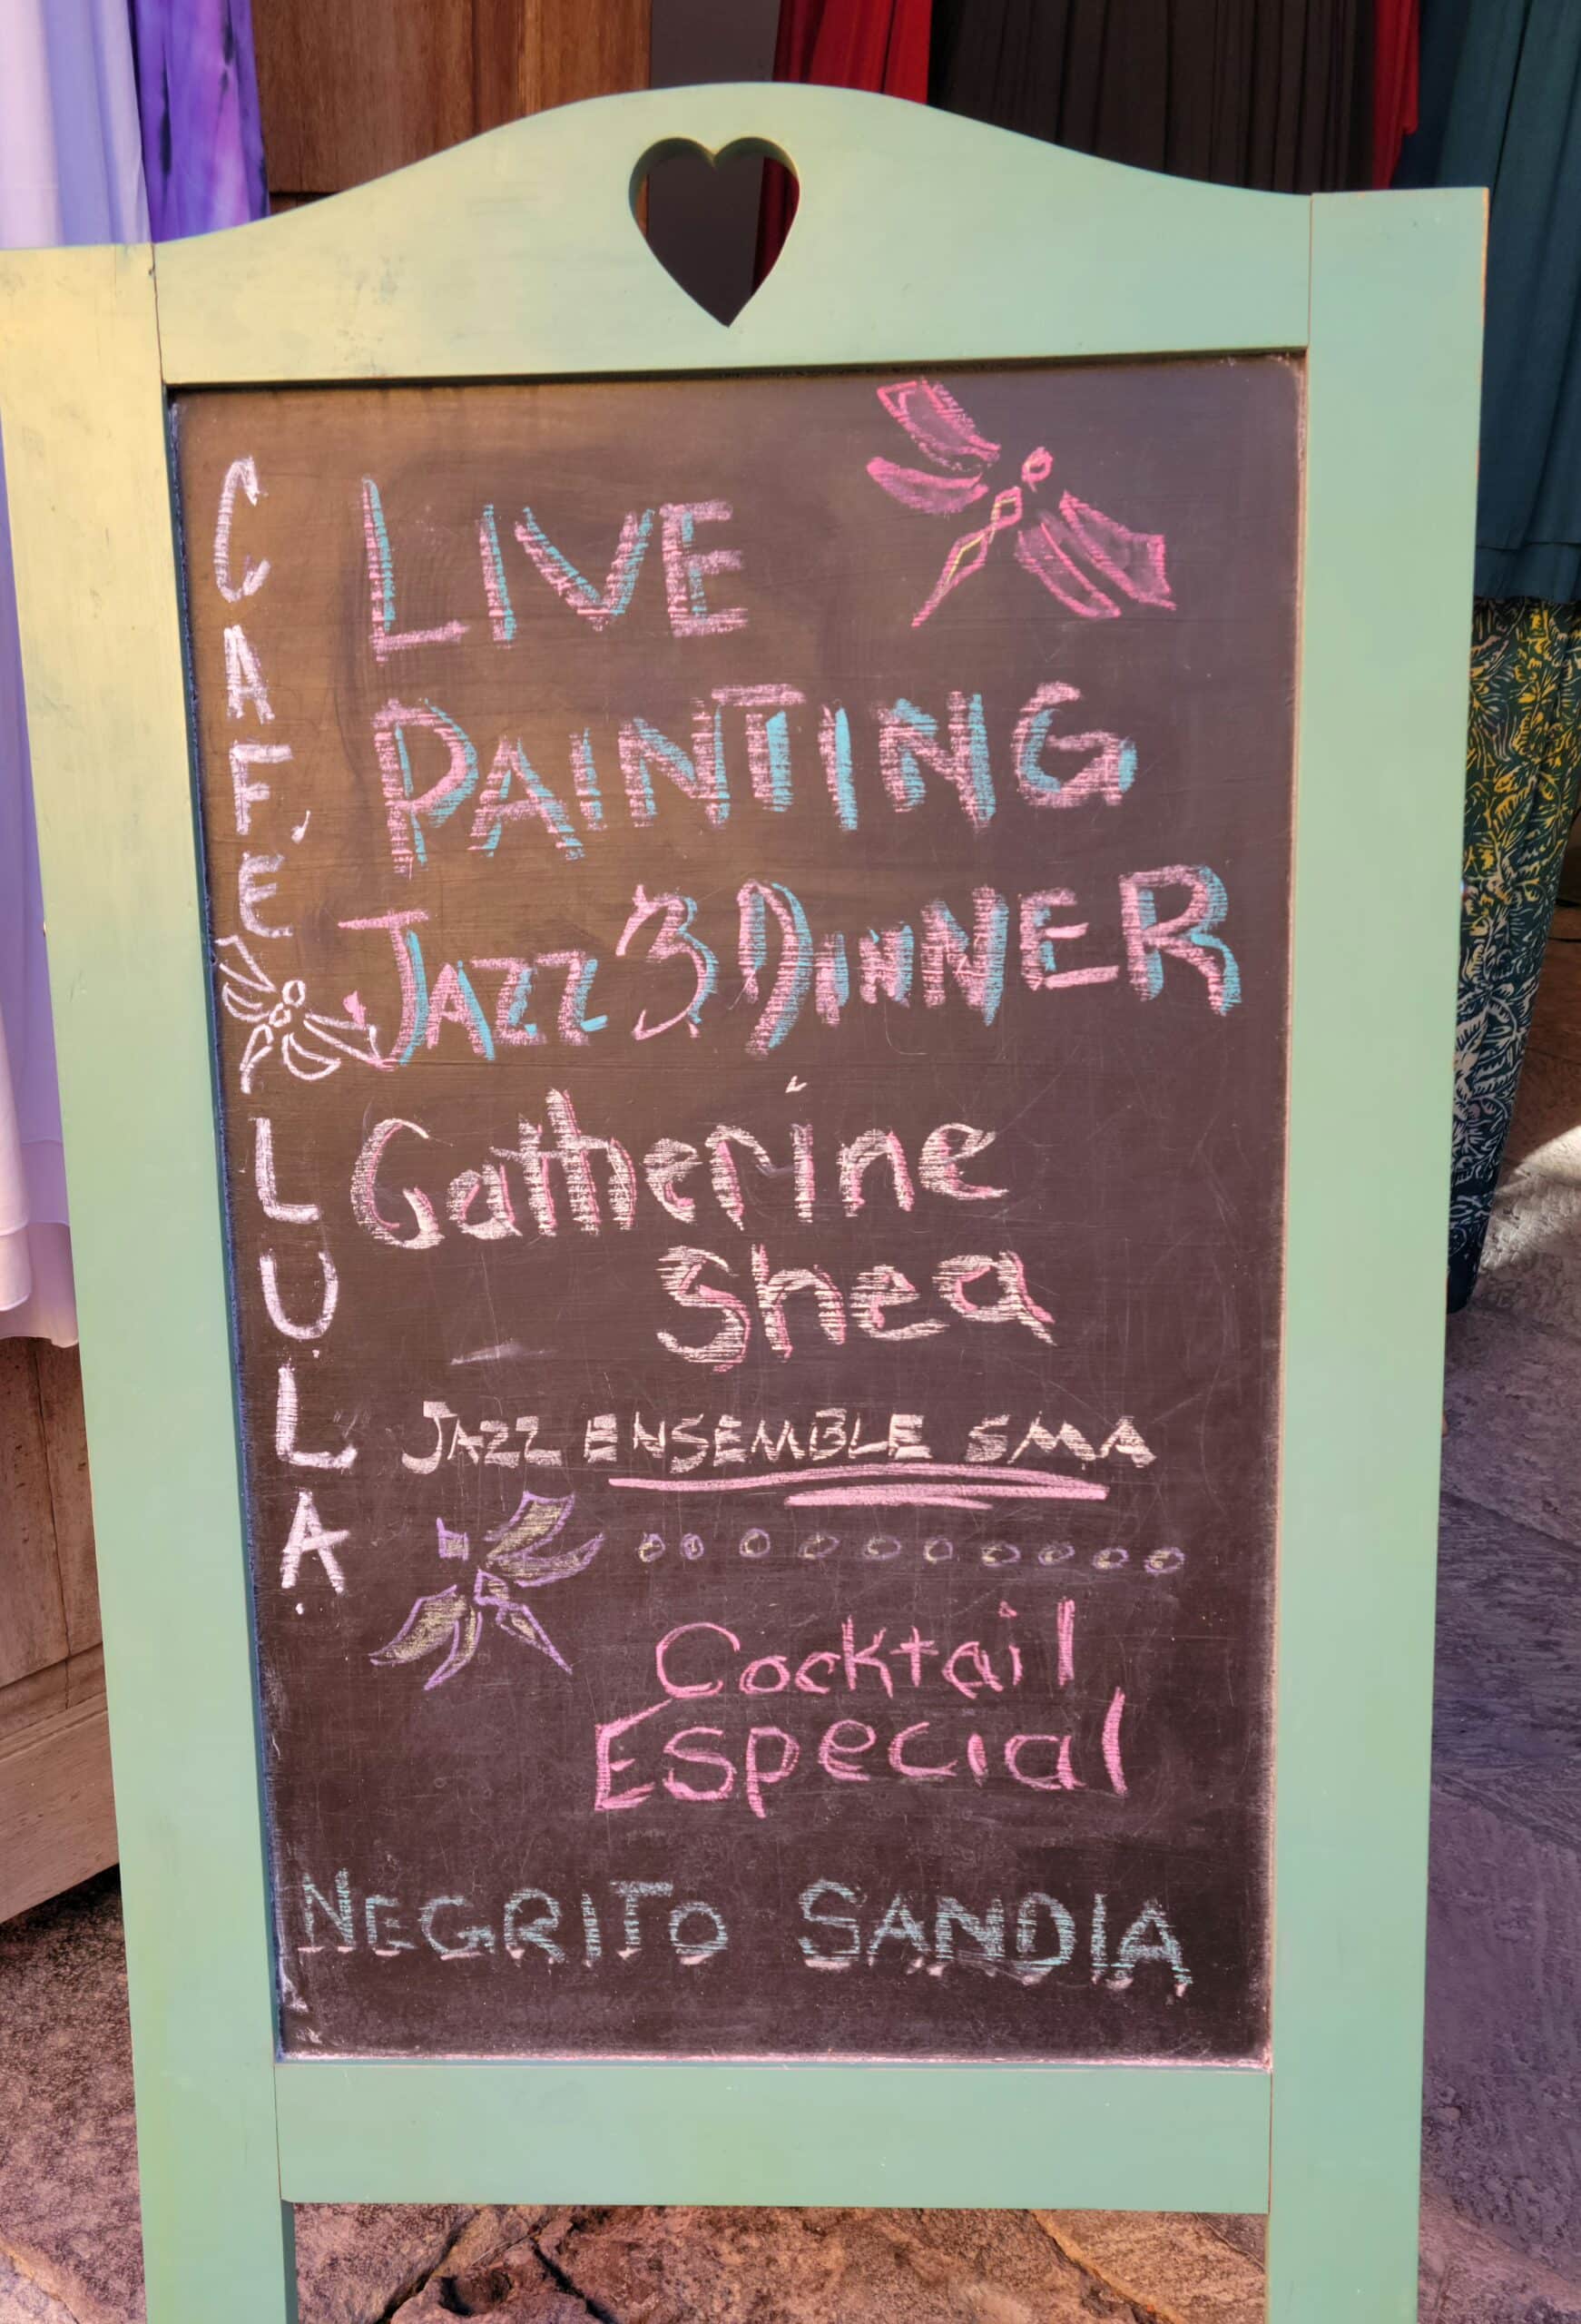 CAFÉ LULA
LIVE
PAINTING
JAZZ & DINNER
Catherine
Shea
JAZZ ENSEMBLE SMA
Cocktail
Especial
NEGRITO SANDIA